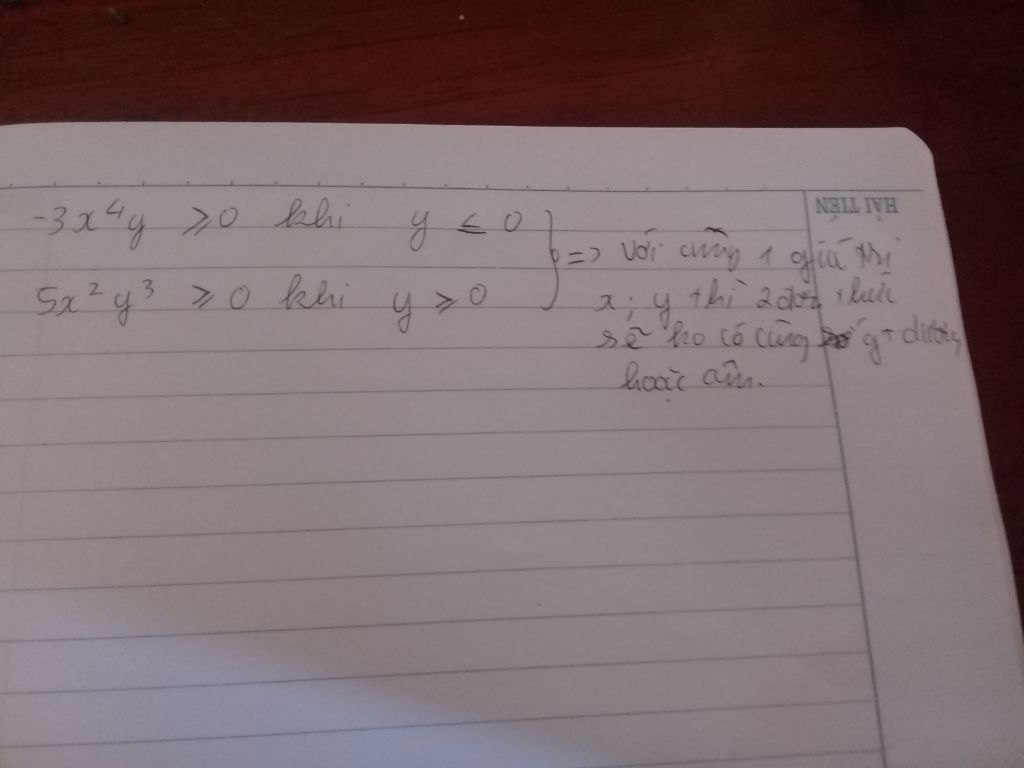 HẢI TIẾN
-3x⁴y ≥0 khi y ≤ 0
5x²y³ ≥ 0 khi y ≥ 0
=> với cùng 1 giá trị
x; y thì 2 đơn thức
sẽ ko có cùng gt dương
hoặc âm.